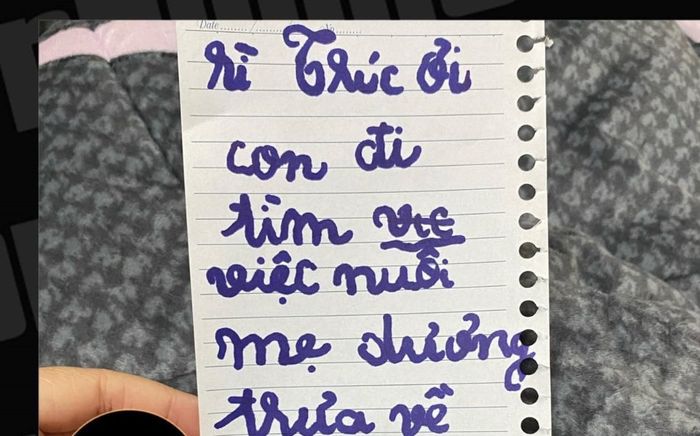 Date......../......../........No.........
hì Thúc ơi
con đi
tìm việc
việc nuôi
mẹ dương
trưa về